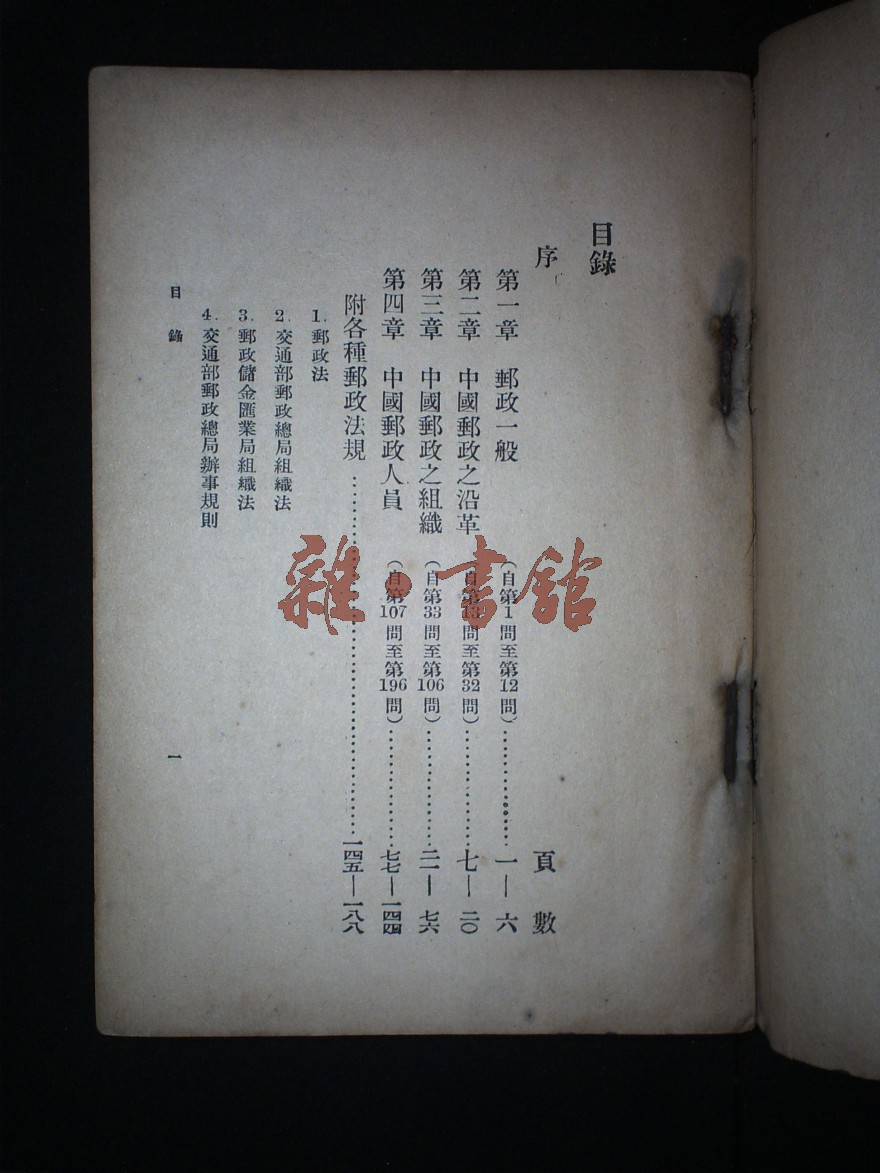 目錄
序
頁數
第一章 郵政一般 (自第1問至第12問)………………一—六
第二章 中國郵政之沿革 (自第13問至第32問)………………七—二〇
第三章 中國郵政之組織 (自第33問至第106問)………………二一—七六
第四章 中國郵政人員 (自第107問至第196問)………………七七—一四四
附各種郵政法規………………一四五—一八八
1. 郵政法
2. 交通部郵政總局組織法
3. 郵政儲金匯業局組織法
4. 交通部郵政總局辦事規則
目錄
一
雜·書館